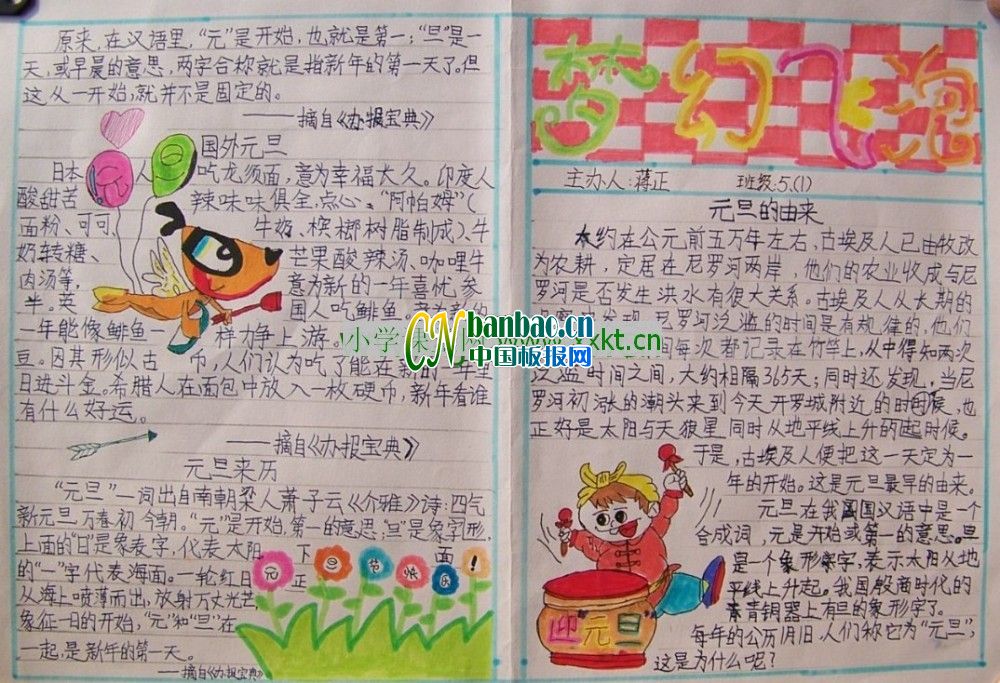 原来,在汉语里,“元”是开始,也就是第一;“旦”是一
天,或早晨的意思,两字合称就是指新年的第一天了。但
这从一开始,就并不是固定的。
——摘自《办报宝典》
国外元旦
日本 人 吃龙须面,意为幸福太久。印度人
酸甜苦 辣味味俱全点心。“阿帕姆”(
面粉、可可、 牛奶、槟榔树脂制成)、牛
奶转糖、 芒果酸辣汤、咖喱牛
肉汤等, 意为新的一年喜忧参
半。英 国人吃鲱鱼
一年能像鲱鱼一 样力争上游。
豆。因其形似古 币,人们认为吃了能在新的一年里
日进斗金。希腊人在面包中放入一枚硬币,新年看谁
有什么好运。
——摘自《办报宝典》
元旦来历
“元旦”一词出自南朝梁人萧子云《介雅》诗:四气
新元旦,万春初今朝。“元”是开始,第一的意思;“旦”是象字形,
上面的“日”是象表字,代表太阳 下 面
的“一”字代表海面。一轮红日
从海上喷薄而出,放射万丈光芒,
象征一日的开始,“元”和“旦”在
一起,是新年的第一天。
——摘自《办报宝典》
元 旦 快乐 !
梦幻飞泡
主办人:蒋正 班级:5.(1)
元旦的由来
大约在公元前五万年左右,古埃及人已由牧改
为农耕,定居在尼罗河两岸,他们的农业收成与尼
罗河是否发生洪水有很大关系。古埃及人从长期的
发现,尼罗河泛滥的时间是有规律的,他们
间每次都记录在竹竿上,从中得知两次
泛滥时间之间,大约相隔365天;同时还发现,当尼
罗河初涨的潮头来到今天开罗城附近的时候,也
正好是太阳与天狼星同时从地平线上升的起时候。
于是,古埃及人便把这一天定为一
年的开始。这是元旦最早的由来。
元旦在我国汉语中是一个
合成词,元是开始或第一的意思。旦
是一个象形字,表示太阳从地
平线上升起。我国殷商时代的
青铜器上有旦的象形字了。
每年的公历1月1日,人们称它为“元旦”,
这是为什么呢?
迎元旦
CN banbao.cn
中国板报网
小学课 xkt.cn